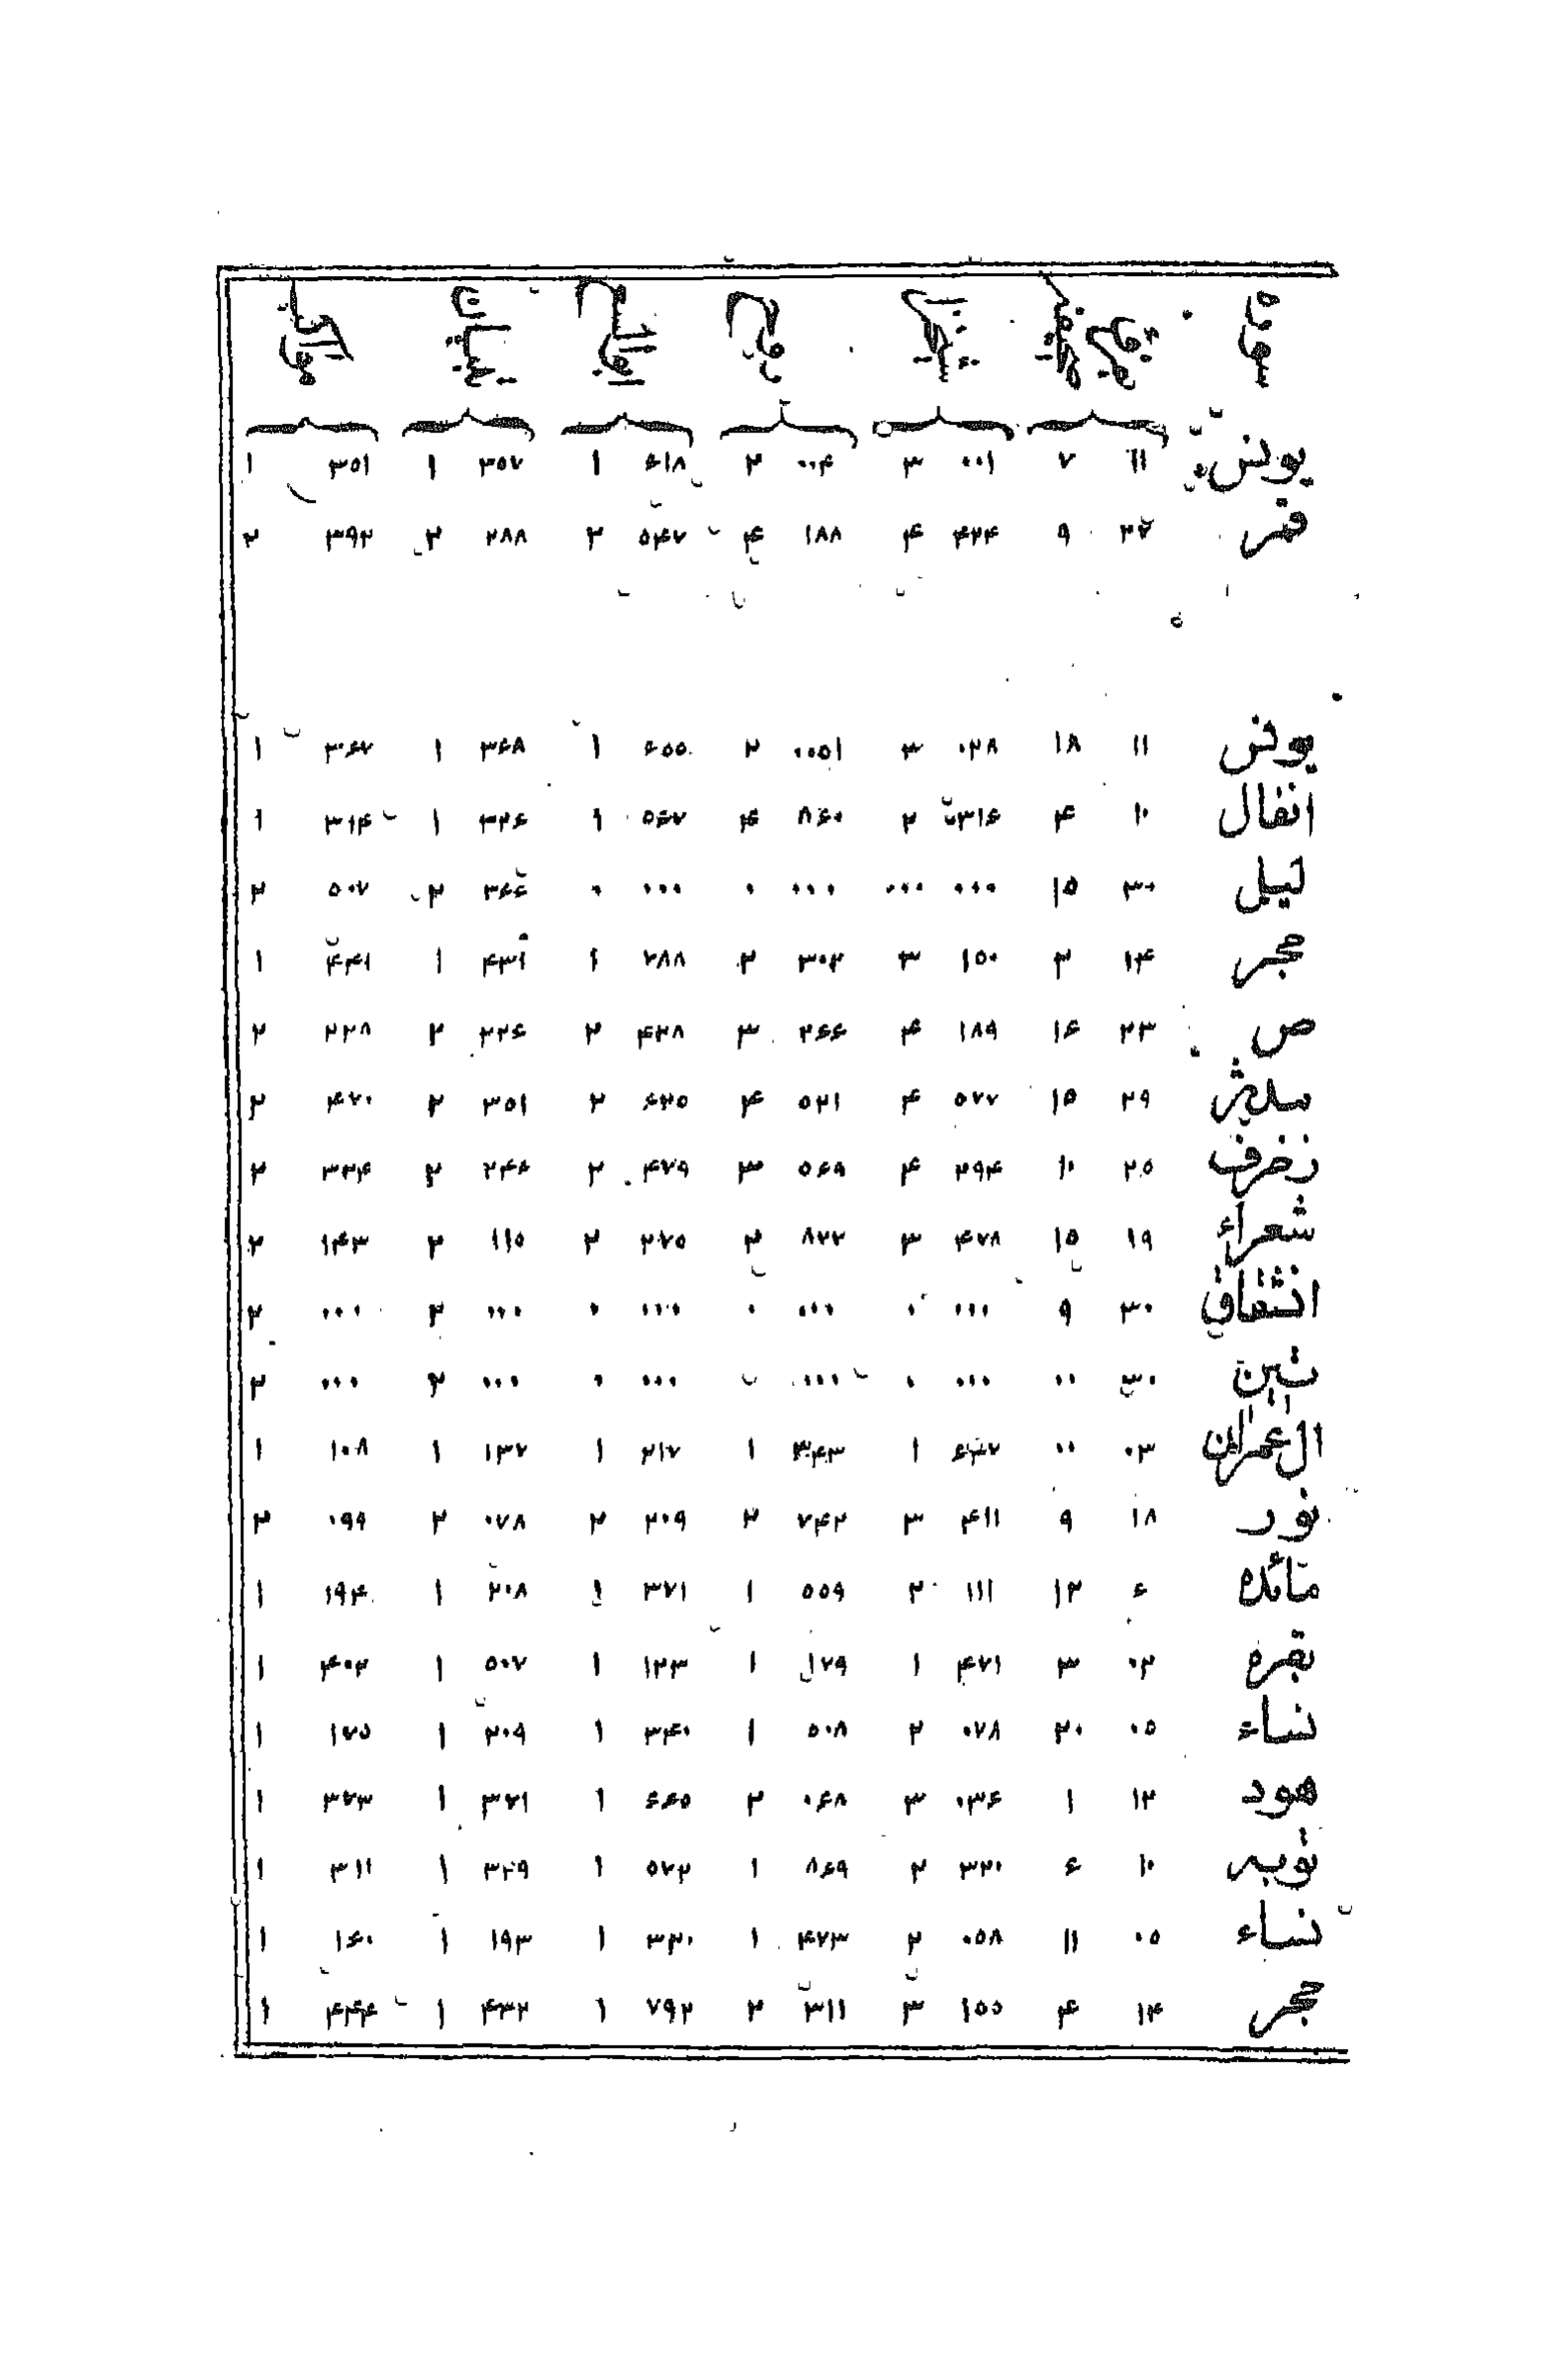 سوره
یونس ۱۱ ۷ ۰۰۱ ۳ ۰۰۴ ۲ ۶۱۸ ۱ ۳۵۷ ۱ ۳۵۱ ۱
قمر ۲۷ ۹ ۴۲۴ ۴ ۱۸۸ ۴ ۵۴۷ ۲ ۲۸۸ ۲ ۳۹۲ ۲
یونس ۱۱ ۱۸ ۰۲۸ ۳ ۰۰۵۱ ۲ ۶۵۵ ۱ ۳۶۸ ۱ ۳۶۷ ۱
انفال ۱۰ ۴ ۳۱۶ ۲ ۸۶۰ ۴ ۵۶۷ ۱ ۳۲۶ ۱ ۳۱۴ ۱
لیل ۳۰ ۱۵ ۰۰۰ ۰۰۰ ۰۰۰ ۰ ۰۰۰ ۰ ۳۶۶ ۲ ۵۰۷ ۲
حجر ۱۴ ۲ ۱۵۰ ۳ ۳۰۲ ۲ ۷۸۸ ۱ ۴۳۱ ۱ ۴۴۱ ۱
ص ۲۳ ۱۶ ۱۸۹ ۴ ۲۶۶ ۳ ۴۲۸ ۲ ۲۲۶ ۲ ۲۲۸ ۲
مدثر ۲۹ ۱۵ ۵۷۷ ۴ ۵۲۱ ۴ ۶۲۵ ۲ ۳۵۱ ۲ ۴۷۰ ۲
زخرف ۲۵ ۱۰ ۲۹۴ ۴ ۵۶۹ ۳ ۴۷۹ ۲ ۲۴۶ ۲ ۳۲۴ ۲
شعراء ۱۹ ۱۵ ۴۷۸ ۳ ۸۲۲ ۲ ۲۷۵ ۲ ۱۱۵ ۲ ۱۴۳ ۲
انشقاق ۳۰ ۹ ۰۰۰ ۰ ۰۰۰ ۰ ۰۰۰ ۰ ۰۰۰ ۲ ۰۰۰ ۲
تین ۳۰ ۰۰ ۰۰۰ ۰ ۰۰۰ ۰۰۰ ۰ ۰۰۰ ۲ ۰۰۰ ۲
ال عمران ۰۳ ۰۰ ۶۳۷ ۱ ۳۴۳ ۱ ۲۱۷ ۱ ۱۳۷ ۱ ۱۰۸ ۱
نور ۱۸ ۹ ۴۱۱ ۳ ۷۴۲ ۲ ۲۰۹ ۲ ۰۷۸ ۲ ۰۹۹ ۲
مائده ۶ ۱۲ ۱۱۱ ۲ ۵۵۹ ۱ ۳۷۱ ۱ ۲۰۸ ۱ ۱۹۴ ۱
بقره ۰۲ ۳ ۴۷۱ ۱ ۱۷۹ ۱ ۱۲۳ ۱ ۵۰۷ ۱ ۴۰۲ ۱
نساء ۰۵ ۲۰ ۰۷۸ ۲ ۵۰۸ ۱ ۳۴۰ ۱ ۲۰۹ ۱ ۱۷۵ ۱
هود ۱۲ ۱ ۰۳۶ ۳ ۰۶۸ ۲ ۶۶۵ ۱ ۳۷۱ ۱ ۳۷۳ ۱
توبه ۱۰ ۶ ۳۲۰ ۲ ۸۶۹ ۱ ۵۷۲ ۱ ۳۲۹ ۱ ۳۱۱ ۱
نساء ۰۵ ۱۱ ۰۵۸ ۲ ۴۷۳ ۱ ۳۲۰ ۱ ۱۹۳ ۱ ۱۶۰ ۱
حجر ۱۴ ۴ ۱۵۵ ۳ ۳۱۱ ۲ ۷۹۲ ۱ ۴۳۲ ۱ ۴۴۴ ۱